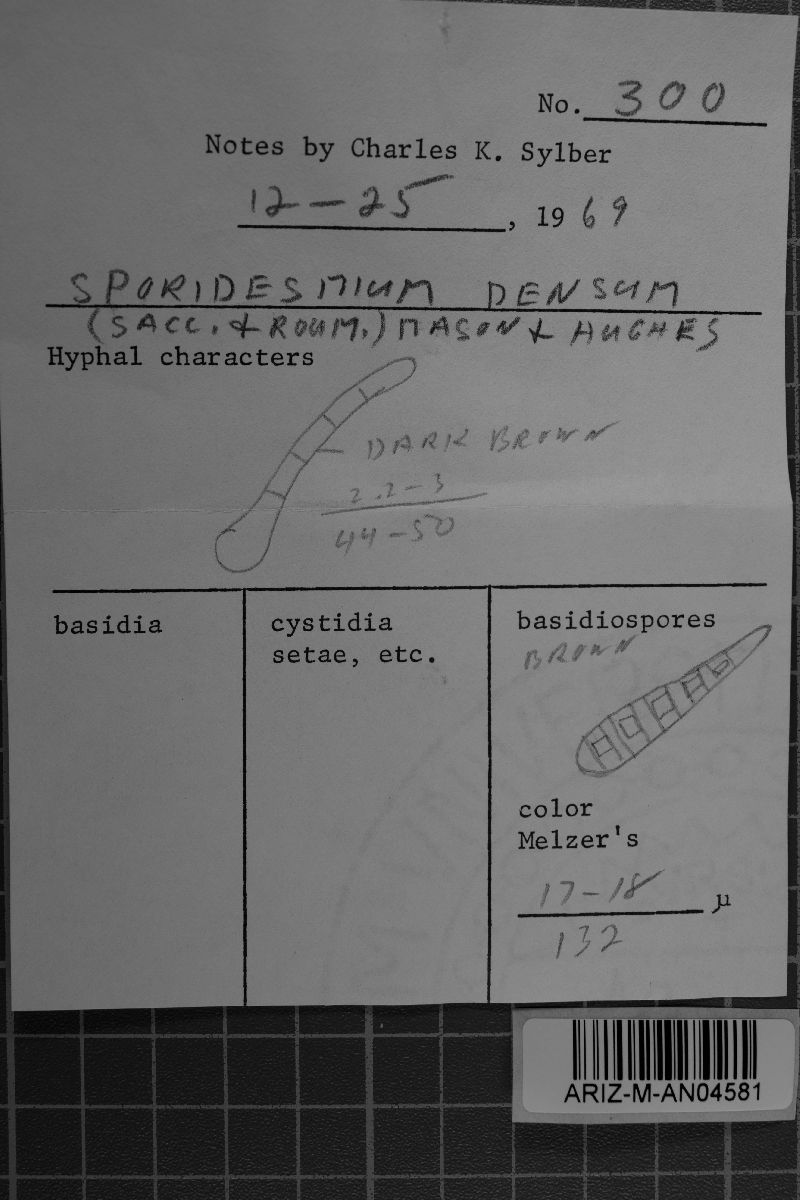 No. 300
Notes by Charles K. Sylber
12-25, 1969
SPORIDESMIUM DENSUM
(SACC. & ROUM.) MASON & HUGHES
Hyphal characters
DARK BROWN
2.2-3
44-50
basidia
cystidia
setae, etc.
basidiospores
BROWN
color
Melzer's
17-18 µ
132
ARIZ-M-AN04581